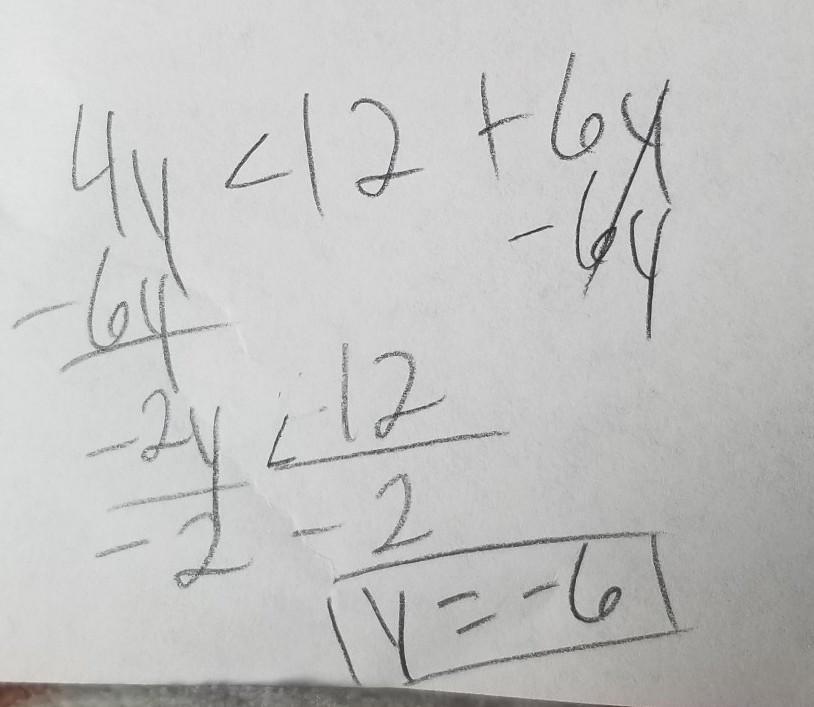 4y < 12 + 6y
-6y -6y
-2y < 12
-2 -2
y = -6